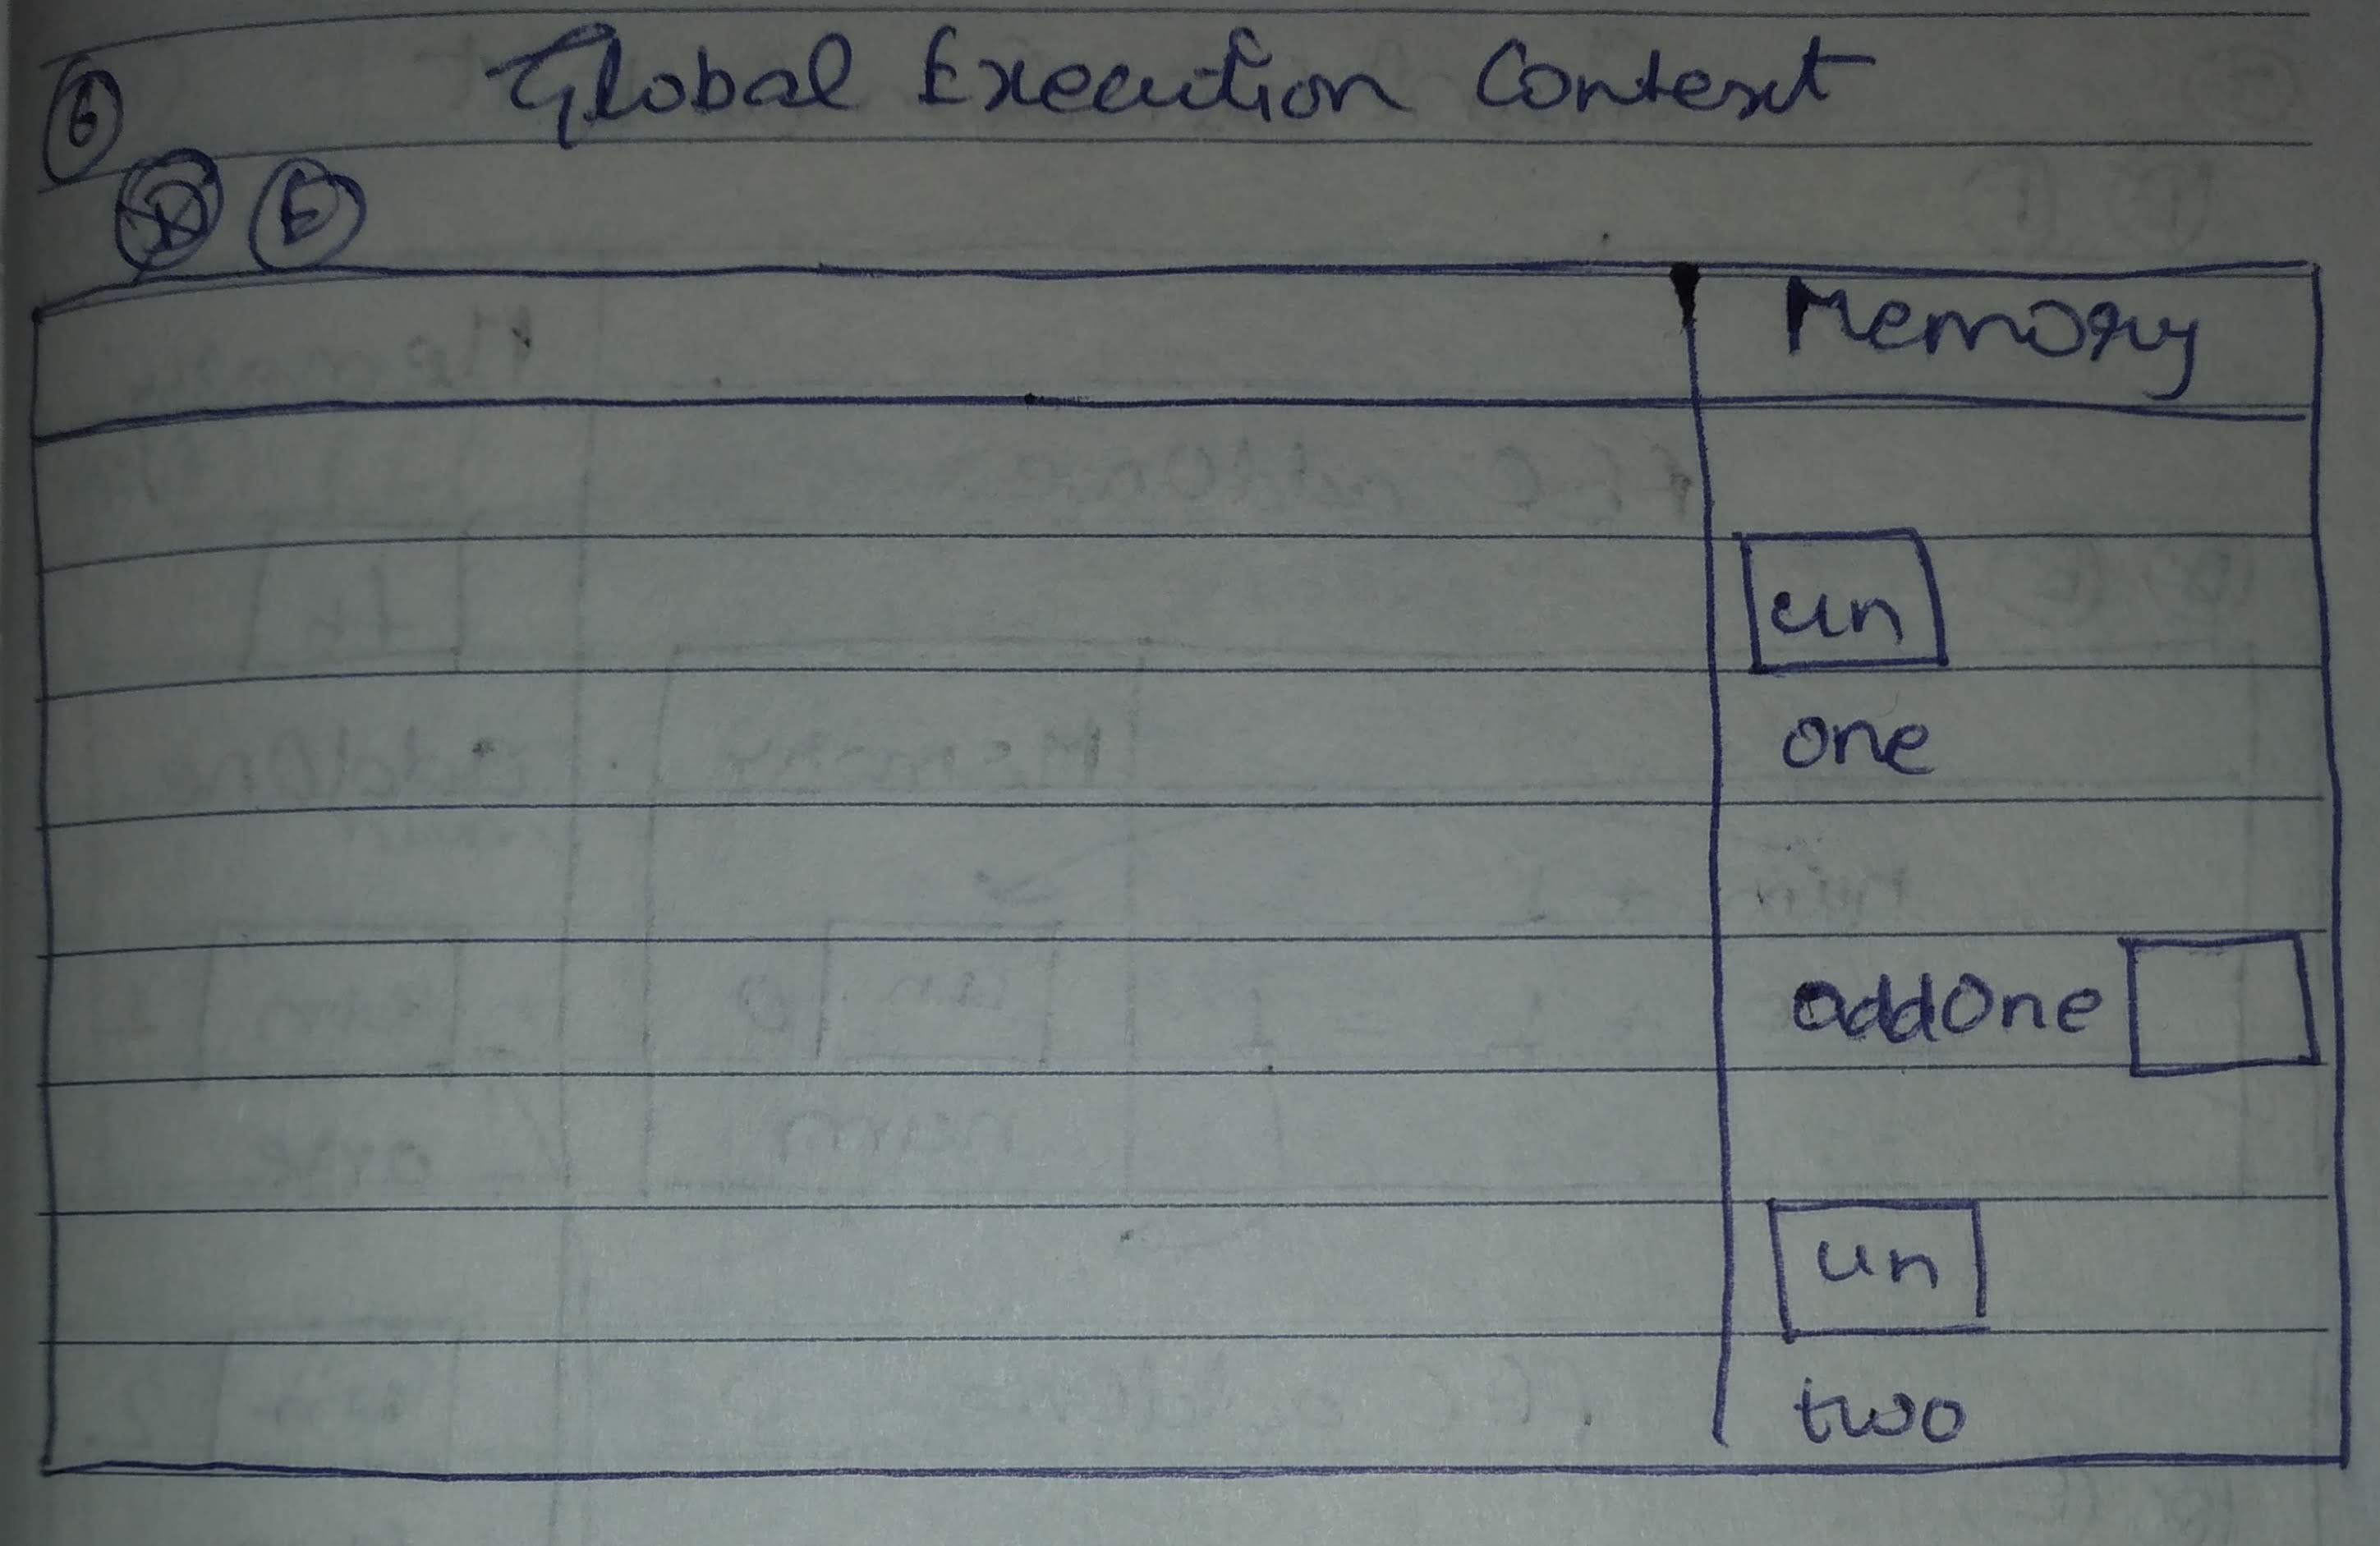 6 Global Execution Context
D E
Memory
un
one
addOne
un
two